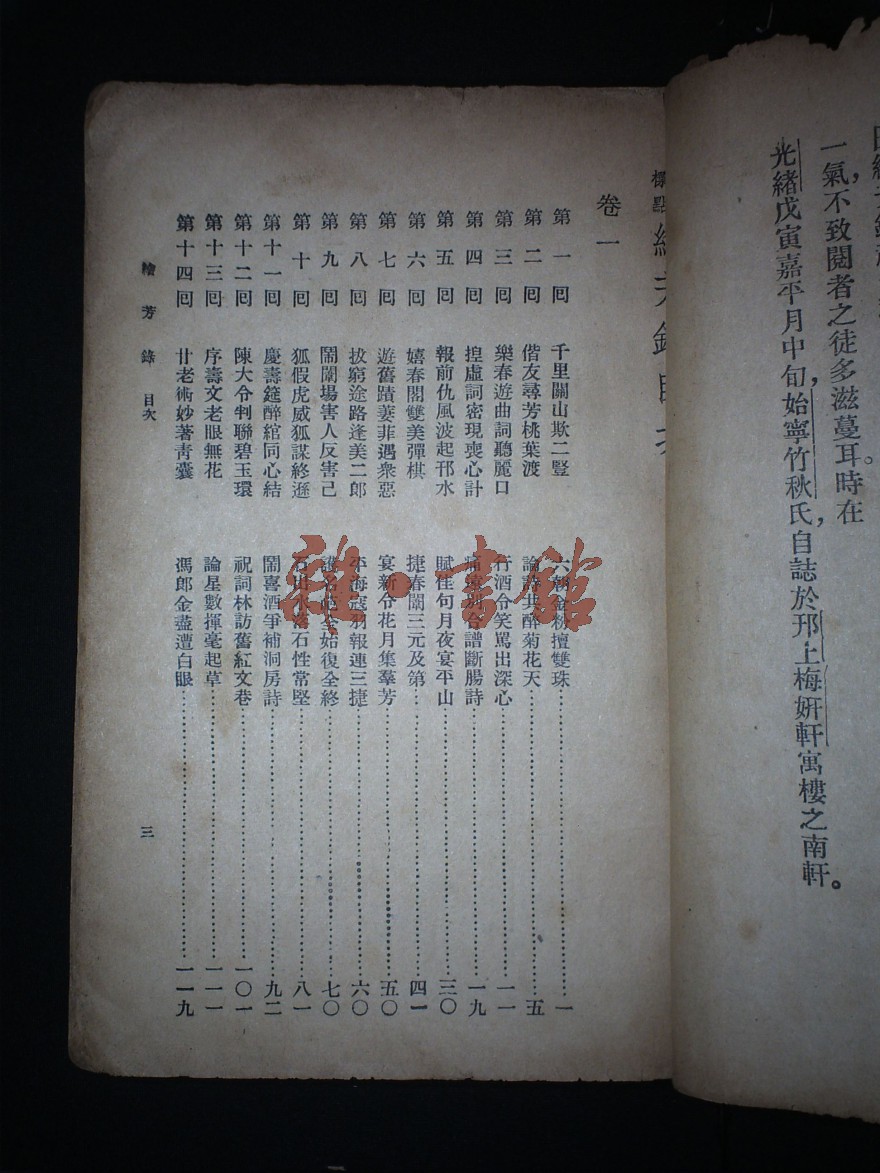 一氣，不致閱者之徒多滋蔓耳時在
光緒戊寅嘉平月中旬，始寧竹秋氏，自誌於邗上梅妍軒寓樓之南軒。
標點
卷一
第一回 千里關山欺二豎 六朝金粉擅雙珠 一
第二回 偕友尋芳桃葉渡 論詩共醉菊花天 五
第三回 樂春遊曲詞聽麗口 行酒令笑罵出深心 一一
第四回 揑虛詞密現喪心計 痛哀別台譜斷腸詩 一九
第五回 報前仇風波起邗水 賦佳句月夜宴平山 三〇
第六回 嬉春閣雙美彈棋 捷春闈三元及第 四一
第七回 遊舊蹟萋菲遇衆惡 宴新令花月集羣芳 五〇
第八回 拔窮途路逢美二郎 平海寇羽報連三捷 六〇
第九回 鬧闈場害人反害己 全始復全終 七〇
第十回 狐假虎威狐謀終遜 石出水落石性常堅 八一
第十一回 慶壽筵醉綰同心結 鬧喜酒爭補洞房詩 九二
第十二回 陳大令判聯碧玉環 祝詞林訪舊紅文巷 一〇一
第十三回 序壽文老眼無花 論星數揮毫起草 一一一
第十四回 廿老術妙著靑囊 馮郎金盡遭白眼 一一九
繪芳錄 目次
三
雅·書館